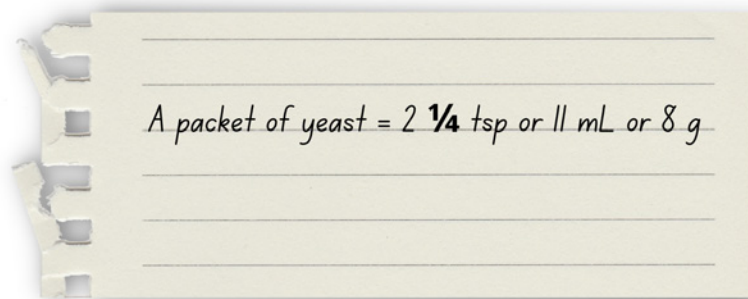 A packet of yeast = 2 ¼ tsp or 11 mL or 8 g